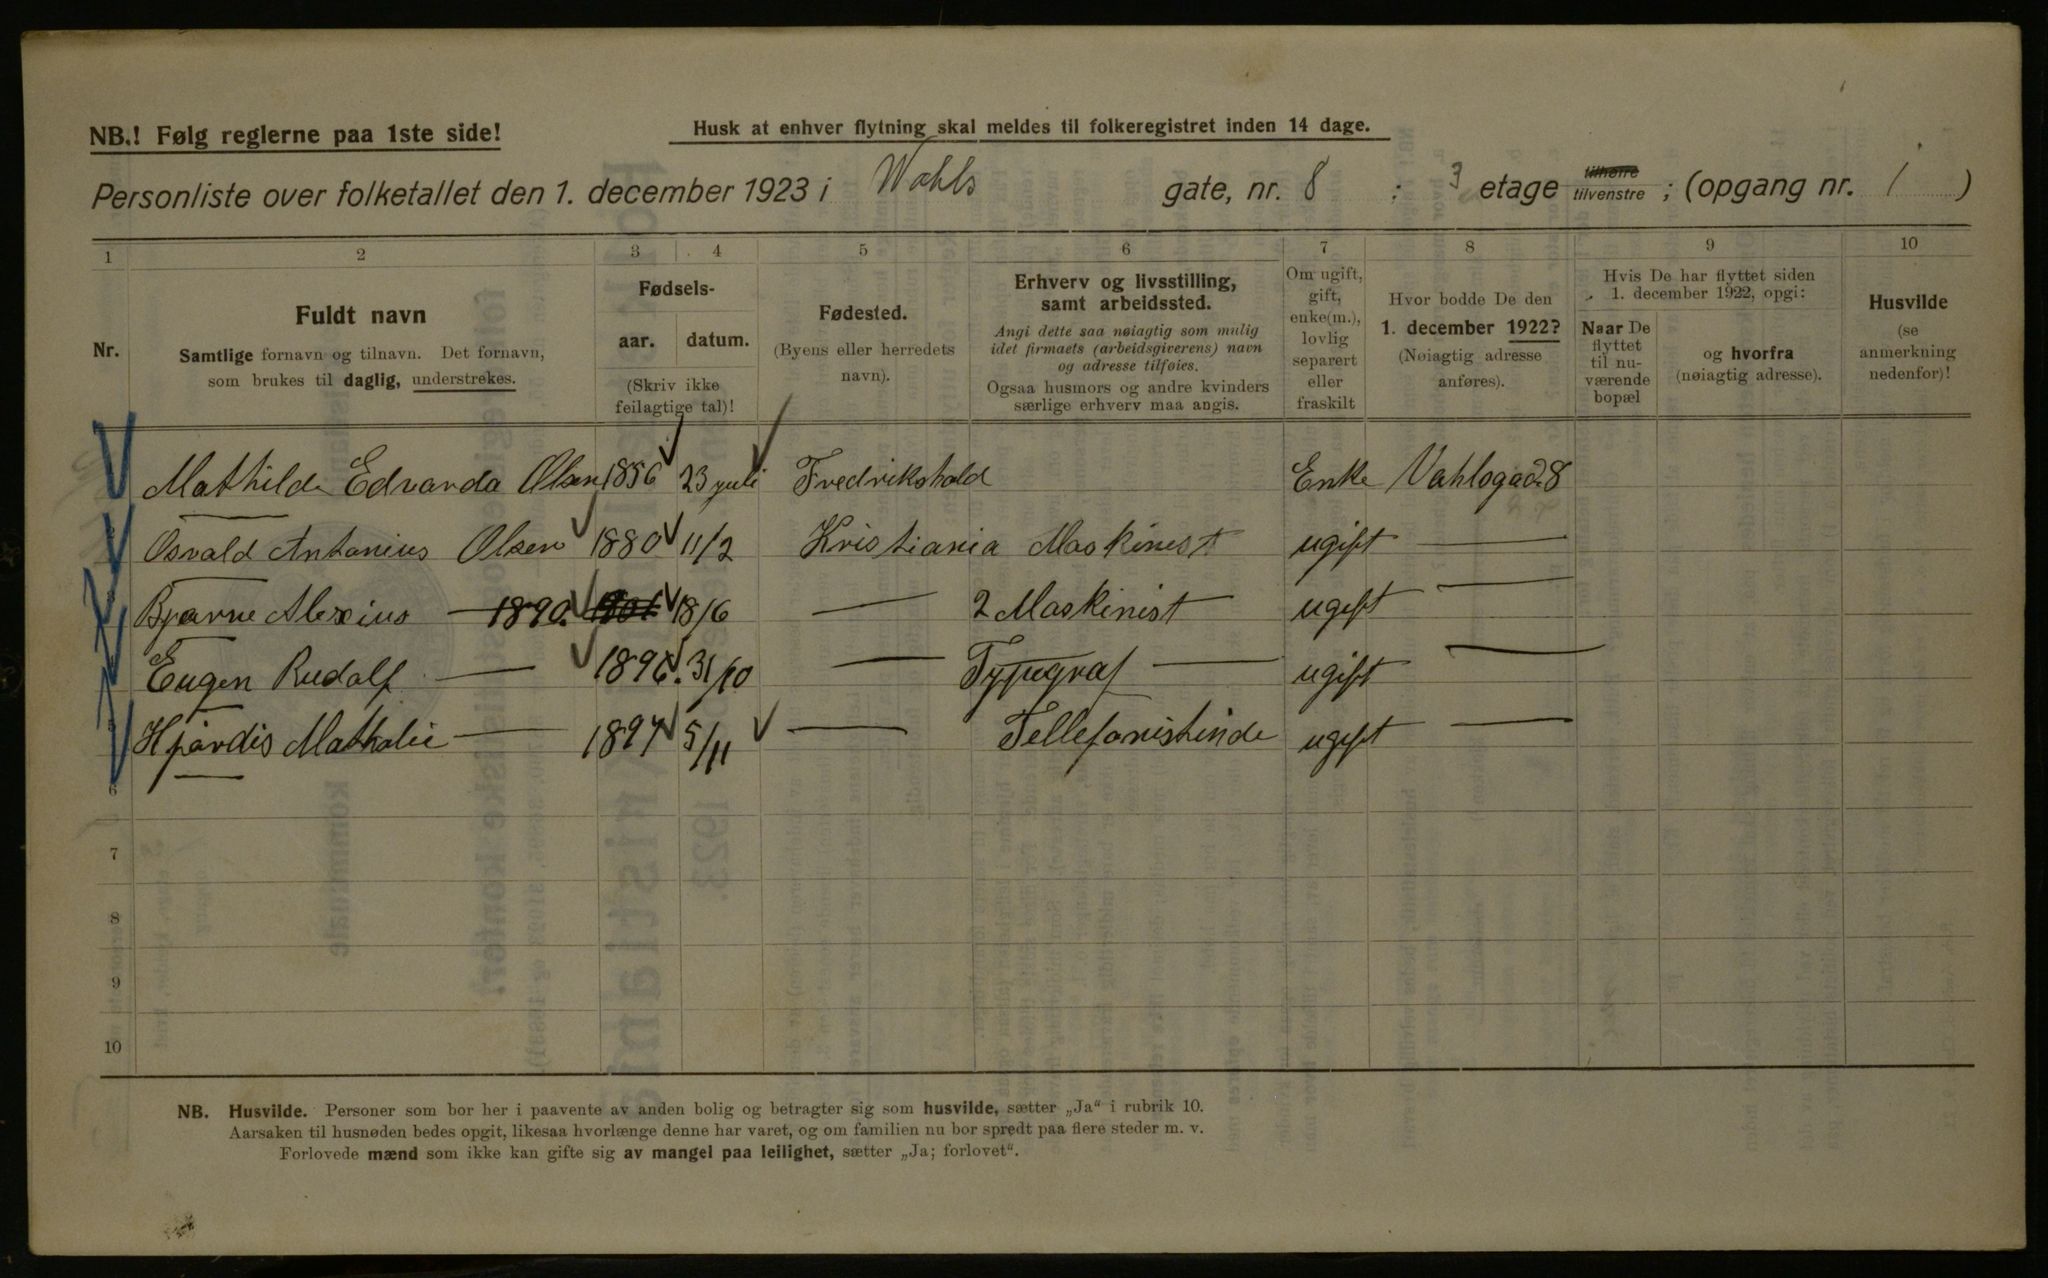 NB.! Følg reglerne paa 1ste side!
Husk at enhver flytning skal meldes til folkeregistret inden 14 dage.
Personliste over folketallet den 1. december 1923 i Wahls gate, nr. 8 : 3 etage tilhøire tilvenstre ; (opgang nr. 1 )
1 2 3 4 5 6 7 8 9 10
Nr.
Fuldt navn
Samtlige fornavn og tilnavn. Det fornavn,
som brukes til daglig, understrekes.
Fødsels-
aar. datum.
(Skriv ikke
feilagtige tal)!
Fødested.
(Byens eller herredets
navn).
Erhverv og livsstilling,
samt arbeidssted.
Angi dette saa nøiagtig som mulig
idet firmaets (arbeidsgiverens) navn
og adresse tilføies.
Ogsaa husmors og andre kvinders
særlige erhverv maa angis.
Om ugift,
gift,
enke(m.),
lovlig
separert
eller
fraskilt
Hvor bodde De den
1. december 1922?
(Nøiagtig adresse
anføres).
Hvis De har flyttet siden
1. december 1922, opgi:
Naar De
flyttet
til nu-
værende
bopæl
og hvorfra
(nøiagtig adresse).
Husvilde
(se
anmerkning
nedenfor)!
Mathilde Edvarda Olsen 1856 23 juli Fredrikshald Enke Vahlsgad. 8
Osvald Antonius Olsen 1880 11/2 Kristiania Maskinist ugift —
Bjarne Alexius — 1890. 18/6 — 2 Maskinist ugift —
Eugen Rudolf — 1896. 31/10 — Typograf — ugift —
Hjørdis Mathalie — 1897 5/11 — Tellefonistinde ugift —
6
7
8
9
10
NB. Husvilde. Personer som bor her i paavente av anden bolig og betragter sig som husvilde, sætter „Ja“ i rubrik 10.
Aarsaken til husnøden bedes opgit, likesaa hvorlænge denne har varet, og om familien nu bor spredt paa flere steder m. v.
Forlovede mænd som ikke kan gifte sig av mangel paa leilighet, sætter „Ja; forlovet“.